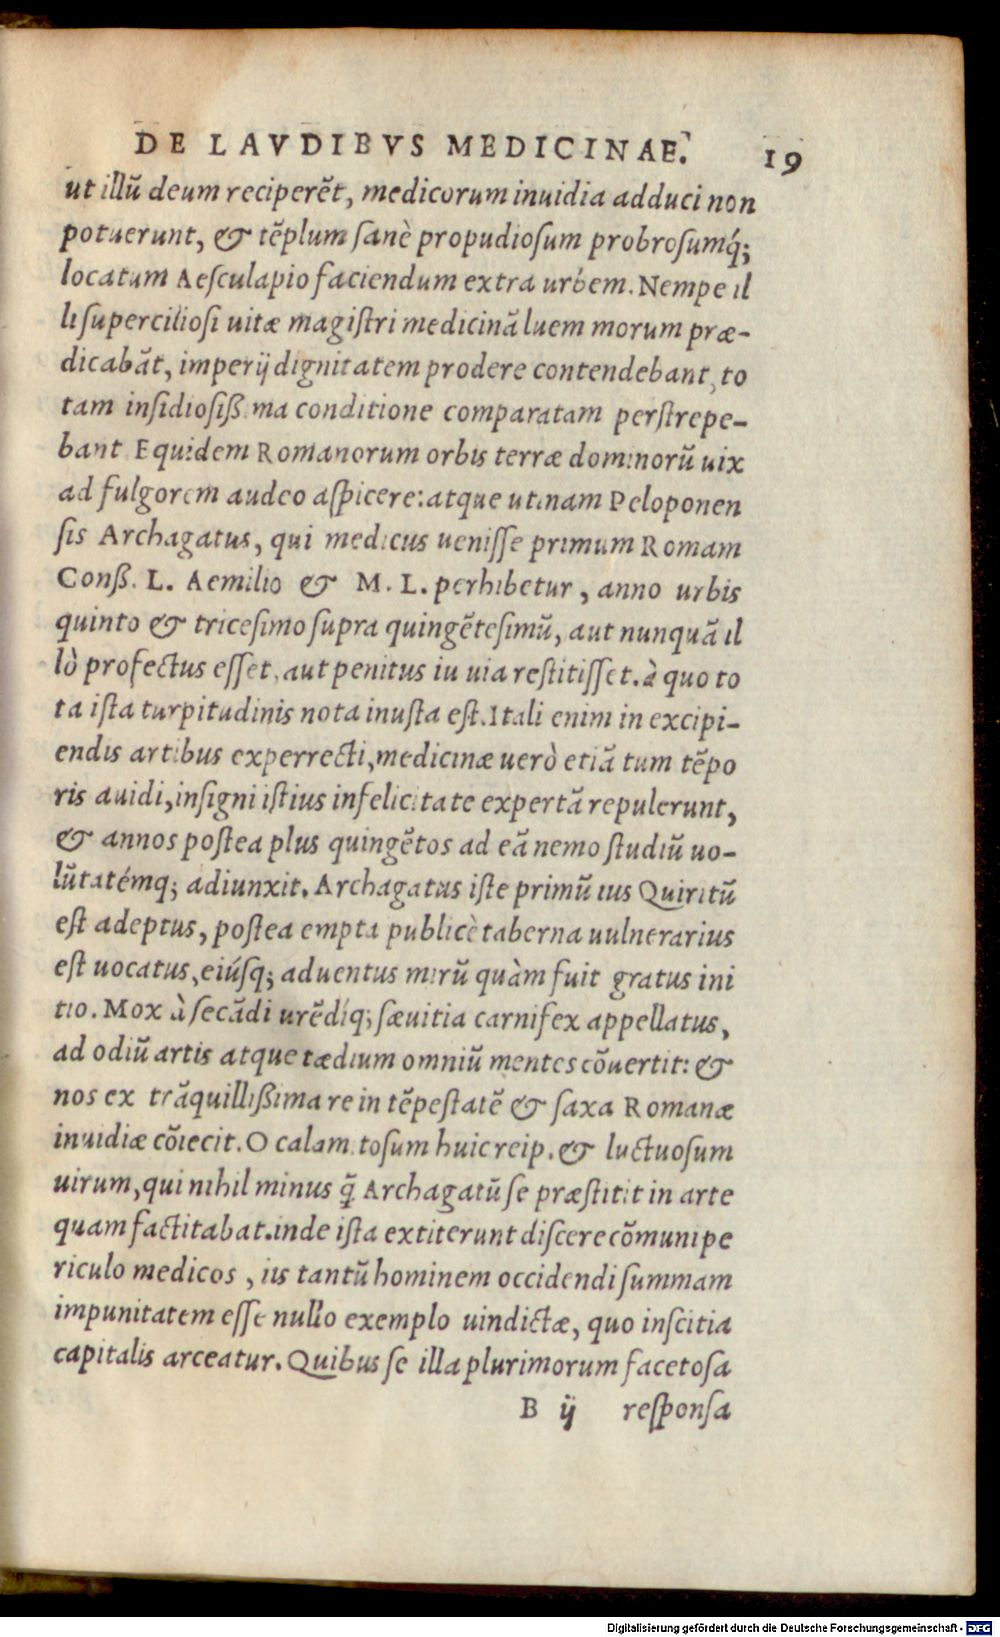 DE LAVDIBVS MEDICINAE. 19
ut illũ deum reciperẽt, medicorum inuidia adduci non
potuerunt, & tẽplum sanè propudiosum probrosumq́;
locatum Aesculapio faciendum extra urbem. Nempe il
li superciliosi uitæ magistri medicinã luem morum præ-
dicabãt, imperij dignitatem prodere contendebant, to
tam insidiosiß.ma conditione comparatam perstrepe-
bant. Equidem Romanorum orbis terræ dominorũ uix
ad fulgorem audeo aspicere: atque utinam Peloponen
sis Archagatus, qui medicus uenisse primum Romam
Conß. L. Aemilio & M. L. perhibetur, anno urbis
quinto & tricesimo supra quingẽtesimũ, aut nunquã il
lò profectus esset, aut penitus iu uia restitisset. à quo to
ta ista turpitudinis nota inusta est. Itali enim in excipi-
endis artibus experrecti, medicinæ uerò etiã tum tẽpo
ris auidi, insigni istius infelicitate expertã repulerunt,
& annos postea plus quingẽtos ad eã nemo studiũ uo-
lũtatémq; adiunxit. Archagatus iste primũ ius Quiritũ
est adeptus, postea empta publicè taberna uulnerarius
est uocatus, eiúsq; aduentus mirũ quàm fuit gratus ini
tio. Mox à secãdi urẽdíq; sæuitia carnifex appellatus,
ad odiũ artis atque tædium omniũ mentes cõuertit: &
nos ex trãquillißima re in tẽpestatẽ & saxa Romanæ
inuidiæ cõiecit. O calamitosum huic reip. & luctuosum
uirum, qui nihil minus q̃ Archagatũ se præstitit in arte
quam factitabat. inde ista extiterunt discere cõmuni pe
riculo medicos, iis tantũ hominem occidendi summam
impunitatem esse nullo exemplo uindictæ, quo inscitia
capitalis arceatur. Quibus se illa plurimorum facetosa
B ij responsa
Digitalisierung gefördert durch die Deutsche Forschungsgemeinschaft - DFG